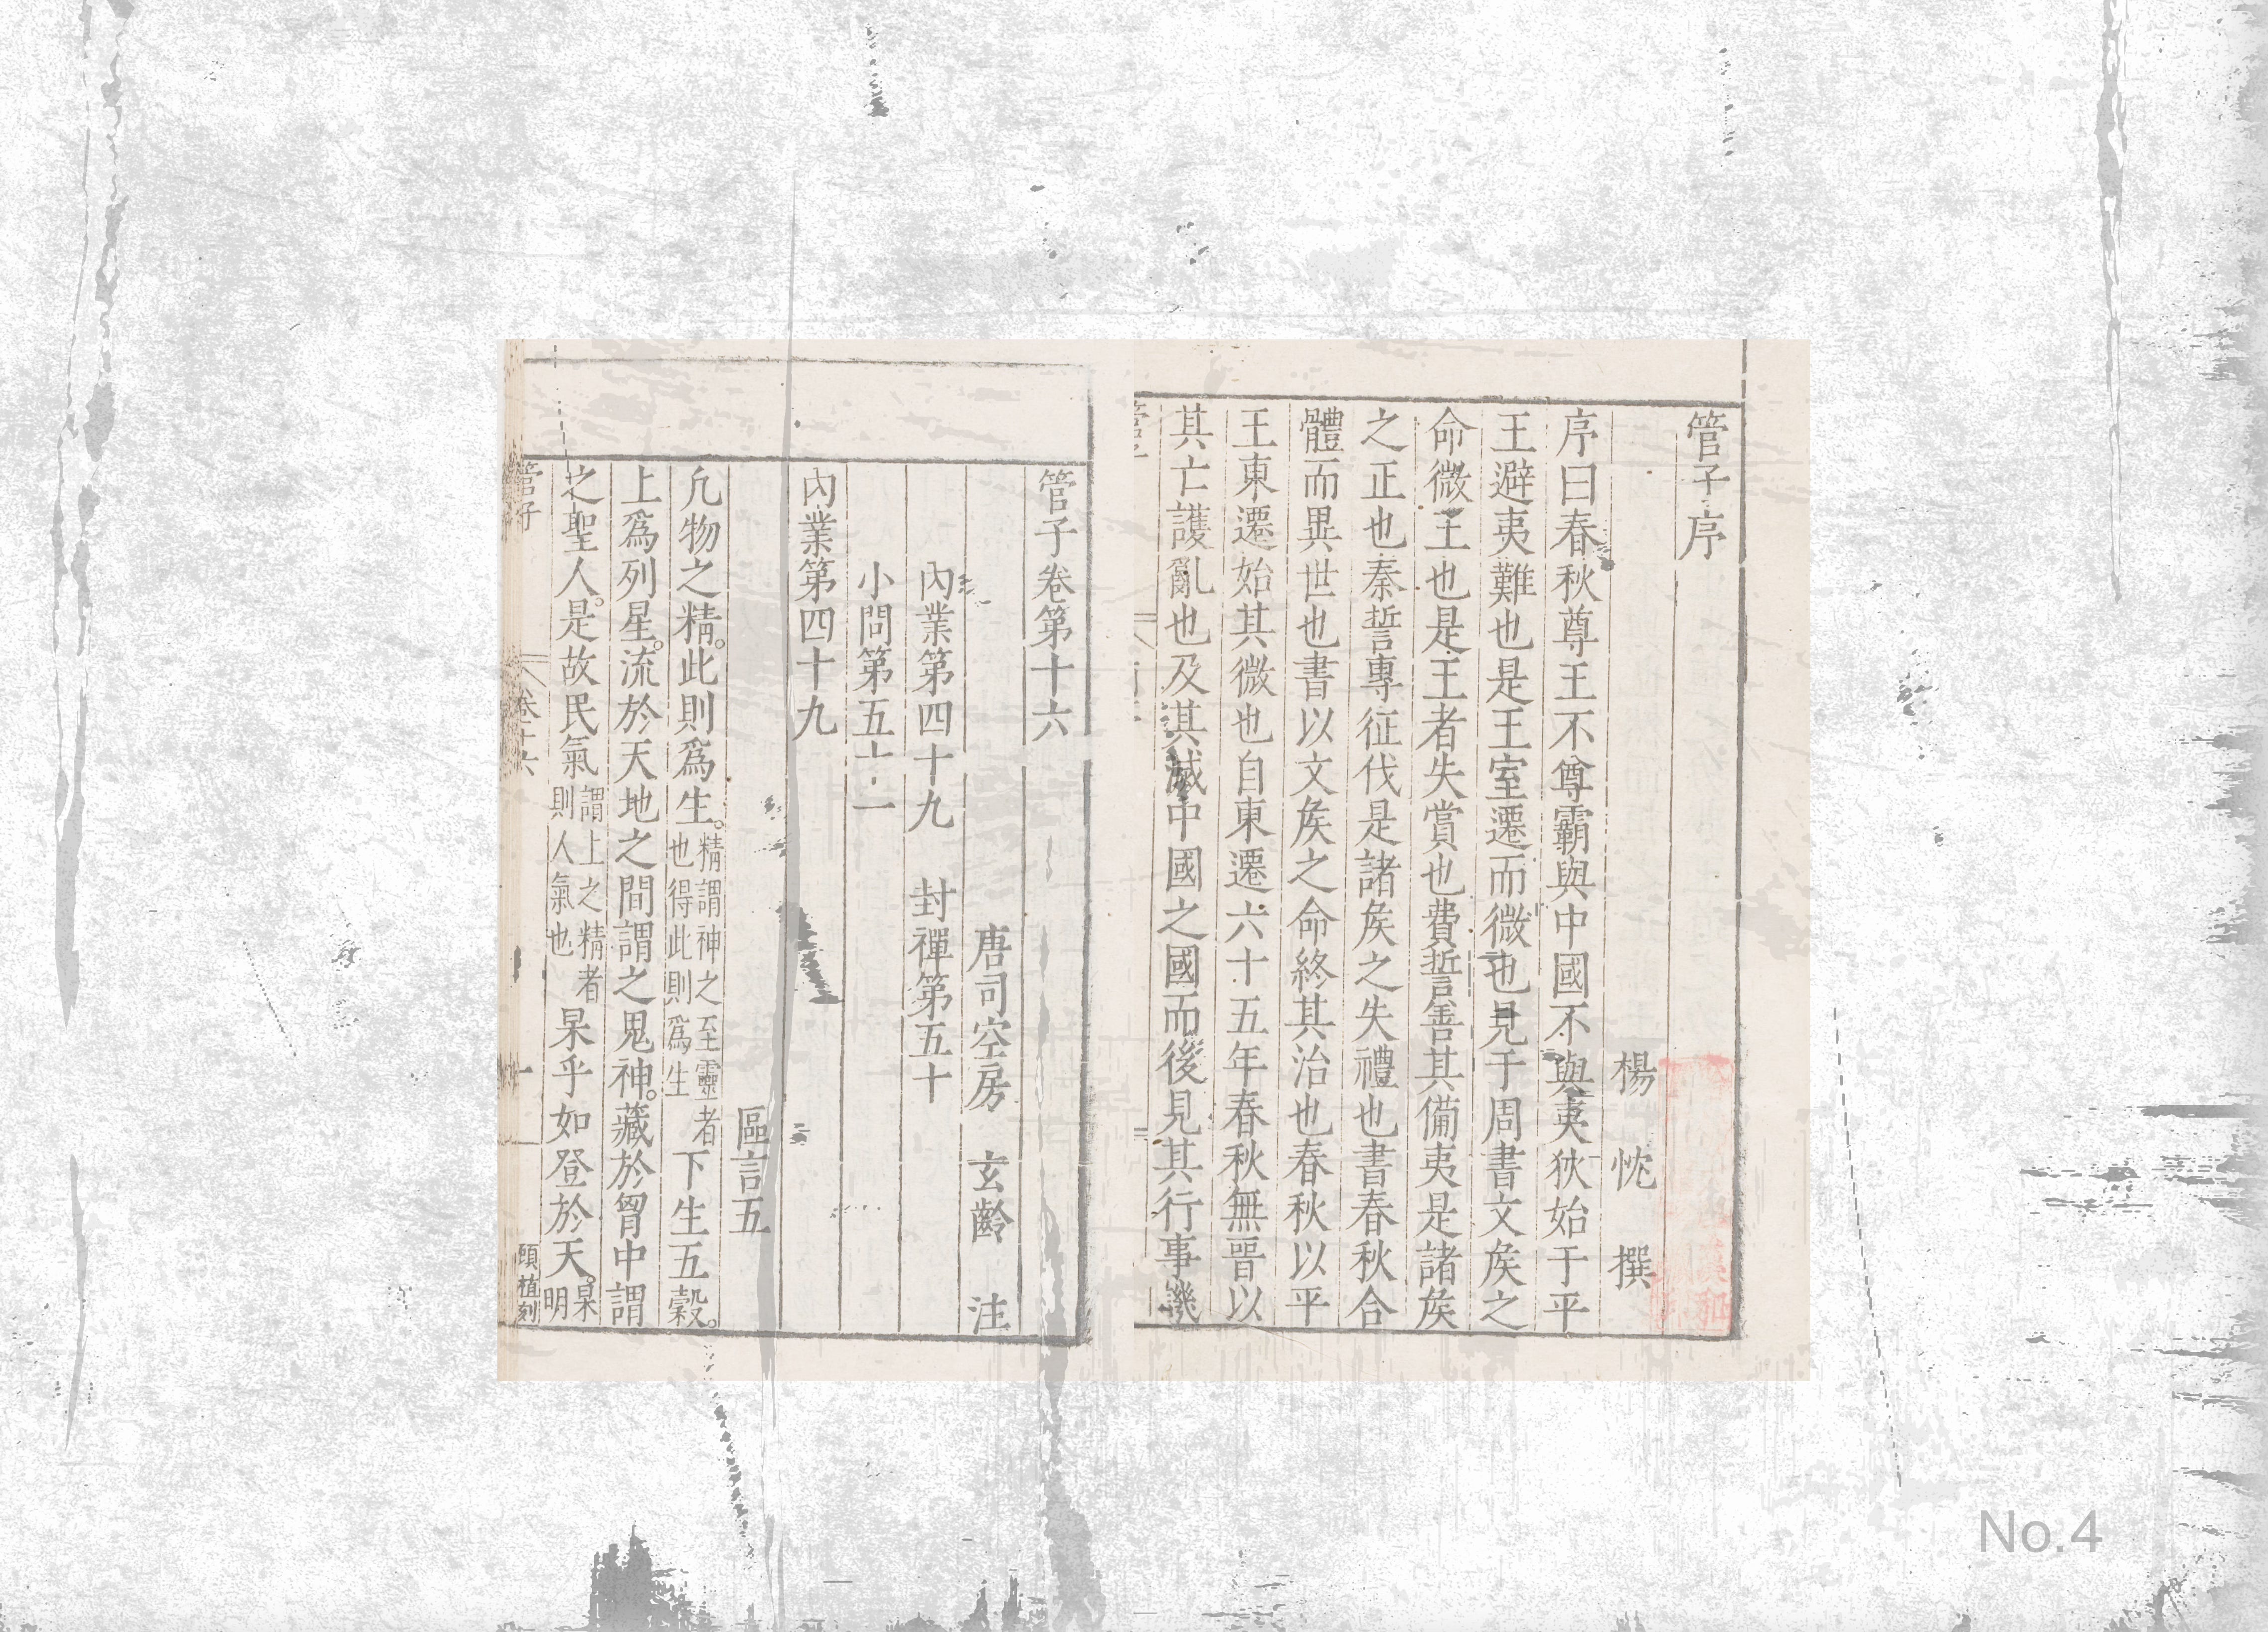 管子序
楊 忱 撰
序曰春秋尊王不尊霸與中國不與夷狄始于平
王避夷難也是王室遷而微也見于周書文矦之
命微王也是王者失賞也費誓善其備夷是諸矦
之正也秦誓專征伐是諸矦之失禮也書春秋合
體而異世也書以文矦之命終其治也春秋以平
王東遷始其微也自東遷六十五年春秋無晉以
其亡護亂也及其滅中國之國而後見其行事譏
管子卷第十六
唐司空房 玄齡 注
內業第四十九 封禪第五十
小問第五十一
內業第四十九
區言五
凢物之精。此則爲生。精謂神之至靈者也得此則爲生下生五穀。
上爲列星。流於天地之間謂之鬼神。藏於胷中謂
之聖人。是故民氣謂上之精者則人氣也杲乎如登於天。杲明
管子
卷十六
一
顧植刻
No.4